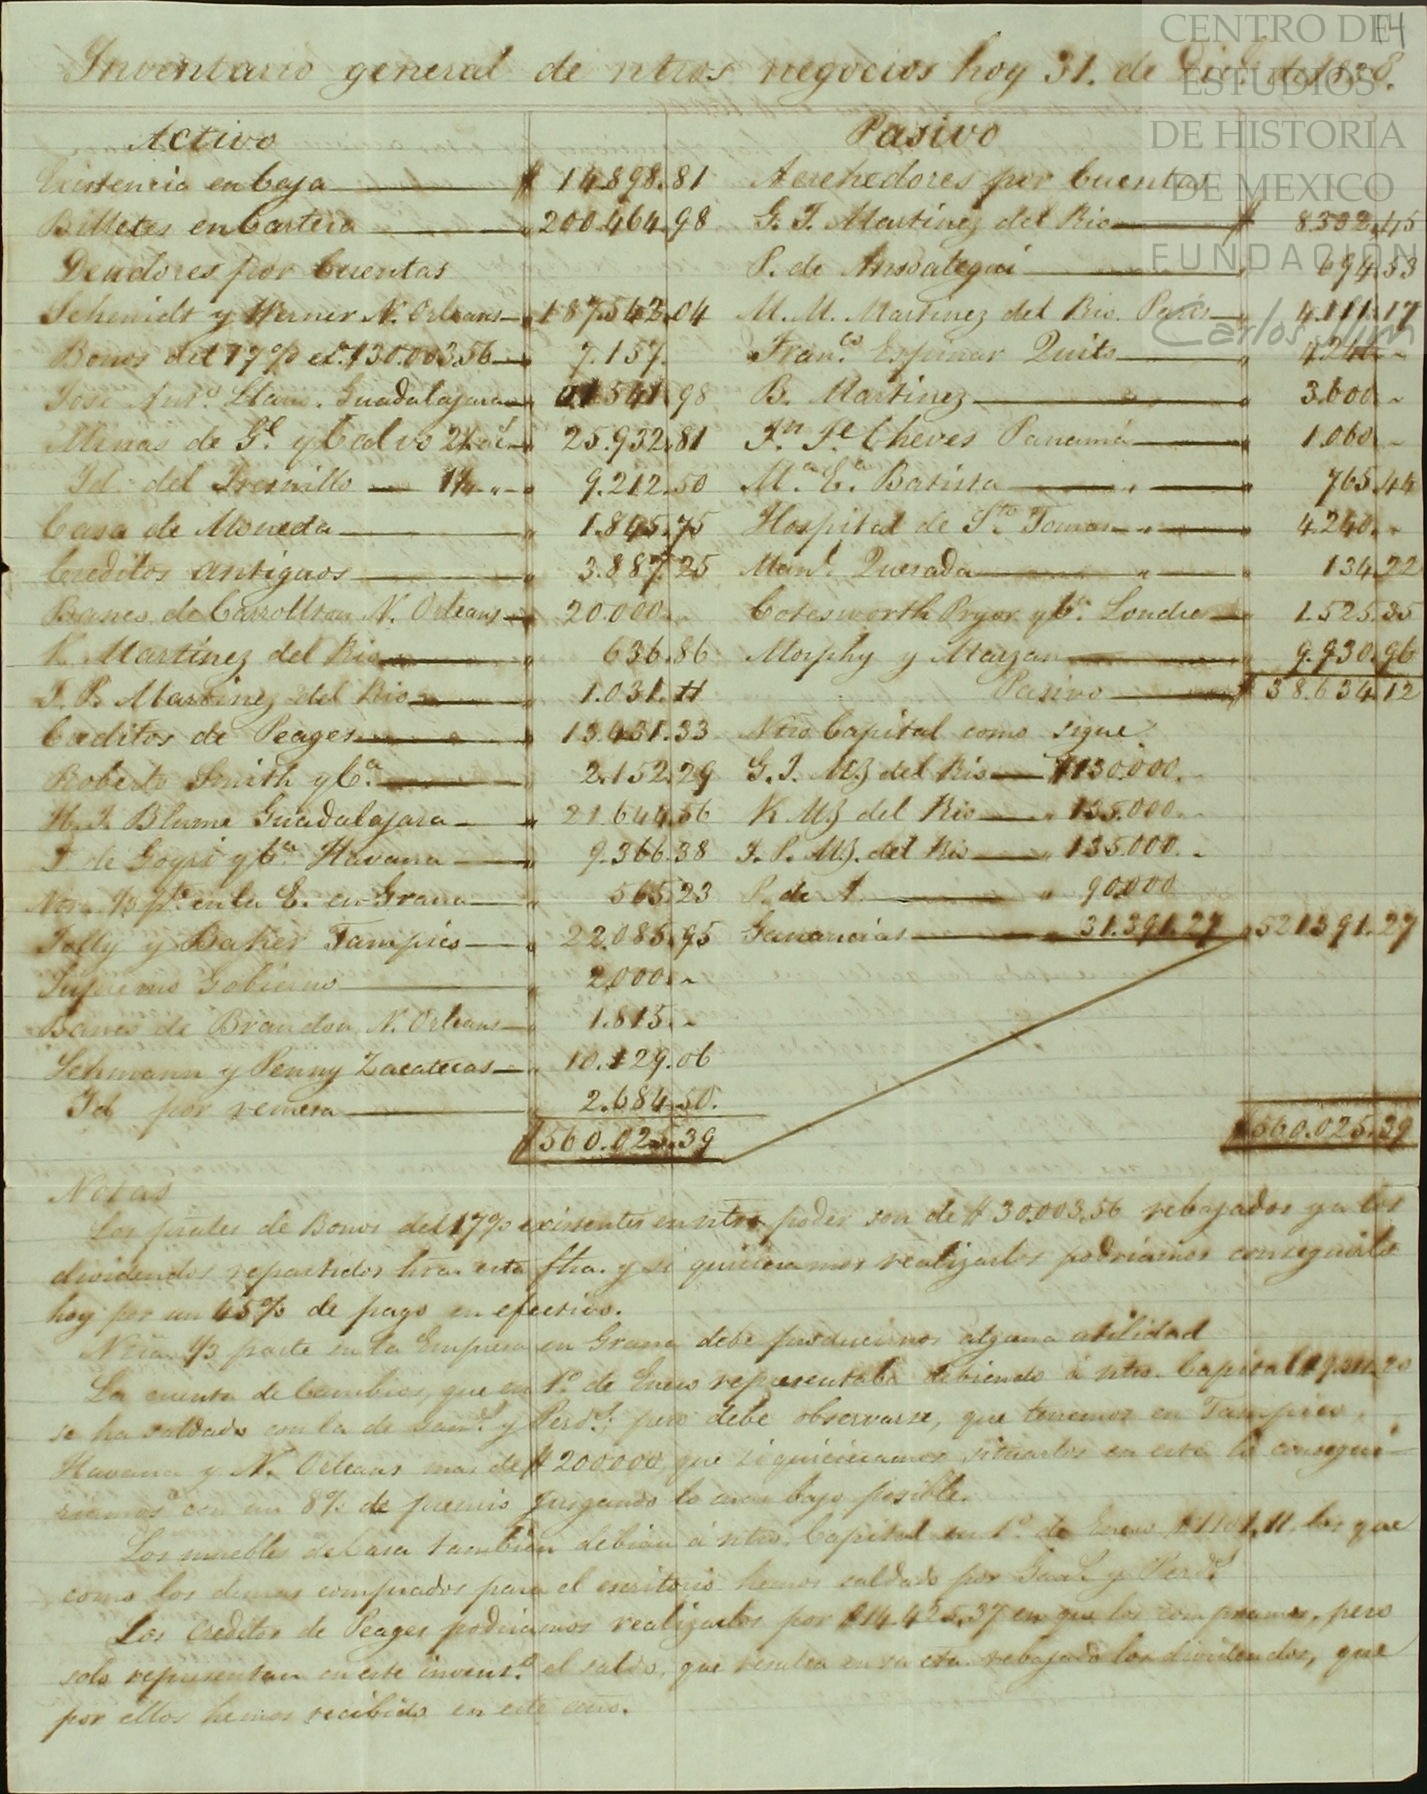 CENTRO DE
ESTUDIOS
DE HISTORIA
DE MEXICO
FUNDACIÓN
Carlos Slim
14
Inventario general de ntros negocios hoy 31. de Dice. de 1838.
Activo
Existencia en Caja $ 14.898.81
Billetes en Cartera 200.464.98
Deudores por Cuentas
Schmidt y Werner N. Orleans 187.542.04
Bonos del 17% et. $30.003.56 7.157.
José Anto. Llano. Guadalajara 1.541.98
Minas de Gpe. y Calvo 25.932.81
Id. del Fresnillo 9.212.50
Casa de Moneda 1.845.75
Creditos antiguos 3.887.25
Banco de Carrollton N. Orleans 20.000..
V. Martinez del Rio 636.86
J. P. Martinez del Rio 1.031.11
Creditos de Peages 13.431.33
Roberto Smith y Ca. 2.152.29
H. J. Blume Guadalajara 21.644.56
J de Goyri y Ca. Havana 9.366.38
Ntra. 1/3 pe. en la E. en Grana 565.23
Jolly y Baker Tampico 22.085.95
Supremo Gobierno 2.000..
Banco de Brandon N. Orleans 1.815..
Schmann y Penny Zacatecas 10.129.06
Id por remesa 2.684.50.
$ 560.025.39
Pasivo
Acrehedores por Cuentas
G. J. Martinez del Rio $ 8.332.45
P. de Ansoategui 694.53
M. M. Martinez del Rio. Paris 4.111.17
Franco. Espinar Quito 4.240..
B. Martinez 3.600..
Jn. Je. Cheves Panamá 1.060..
Ma. Ca. Batista 765.44
Hospital de Sto. Tomas 4.240..
Manl. Quesada 134.22
Cotesworth Pryor y Ca. Londres 1.525.35
Morphy y Marzan 9.930.96
Pasivo $ 38.634.12
Ntro Capital como sigue.
G. J. Mz del Rio $130.000.
V. Mz del Rio 135.000.
J. P. Mz. del Rio 135.000.
P. de A. 90.000
Ganancias 31.391.27 521391.27
$560.025.39
Notas
Los [...] de Bonos del 17% existentes en ntro poder son de $30.003,56 rebajados ya los
dividendos repartidos hta. esta fha. y si quisieramos realizarlos podriamos conseguirlo
hoy por un 45% de pago en efectivo.
Ntra. 1/3 parte en la Empresa en Grana debe producirnos alguna utilidad
La cuenta de Cambios, que en 1o. de Enero representaba debiendo á ntro. Capital
se ha saldado con la de Gans. y Perds.; pero debe observarse, que tenemos en Tampico,
Havana y N. Orleans mas de $200.000, que si quisieramos situarlos en esta lo consegui-
riamos con un 8% de premio juzgando lo mas bajo posible.
Los muebles de Casa tambien debian á ntro. Capital en 1o. de Enero $1101,11. los que
como los demas comprados para el escritorio hemos saldado por Gans. y Perds.
Los Creditos de Peages podriamos realizarlos por $14.425.37 en que los compramos, pero
solo representan en este inveno. el saldo, que resulta en su cta. rebajado los dividendos, que
por ellos hemos recibido en este año.